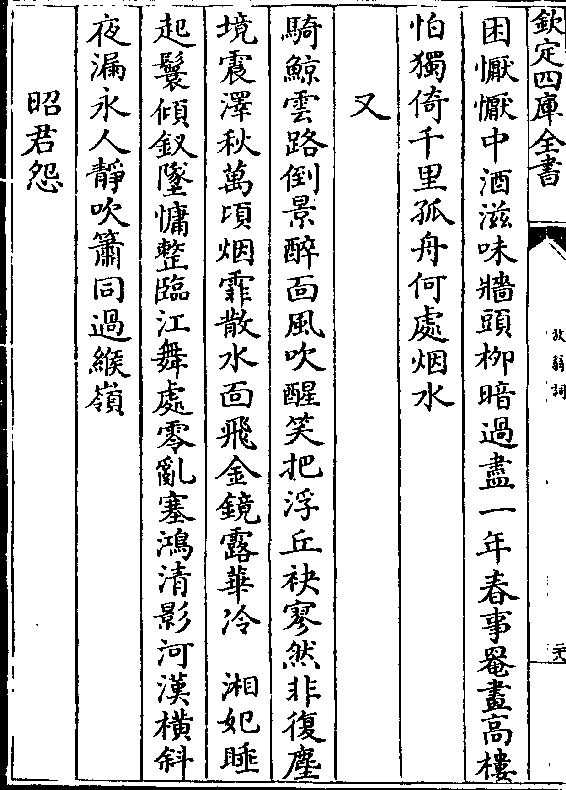 欽定四庫全書
放翁詞
二六
困懨懨中酒滋味牆頭柳暗過盡一年春事罨畫高樓
怕獨倚千里孤舟何處烟水
又
騎鯨雲路倒景醉面風吹醒笑把浮丘袂寥然非復塵
境震澤秋萬頃烟霏散水面飛金鏡露華冷　湘妃睡
起鬟傾釵墜慵整臨江舞處零亂塞鴻清影河漢橫斜
夜漏永人靜吹簫同過緱嶺
昭君怨